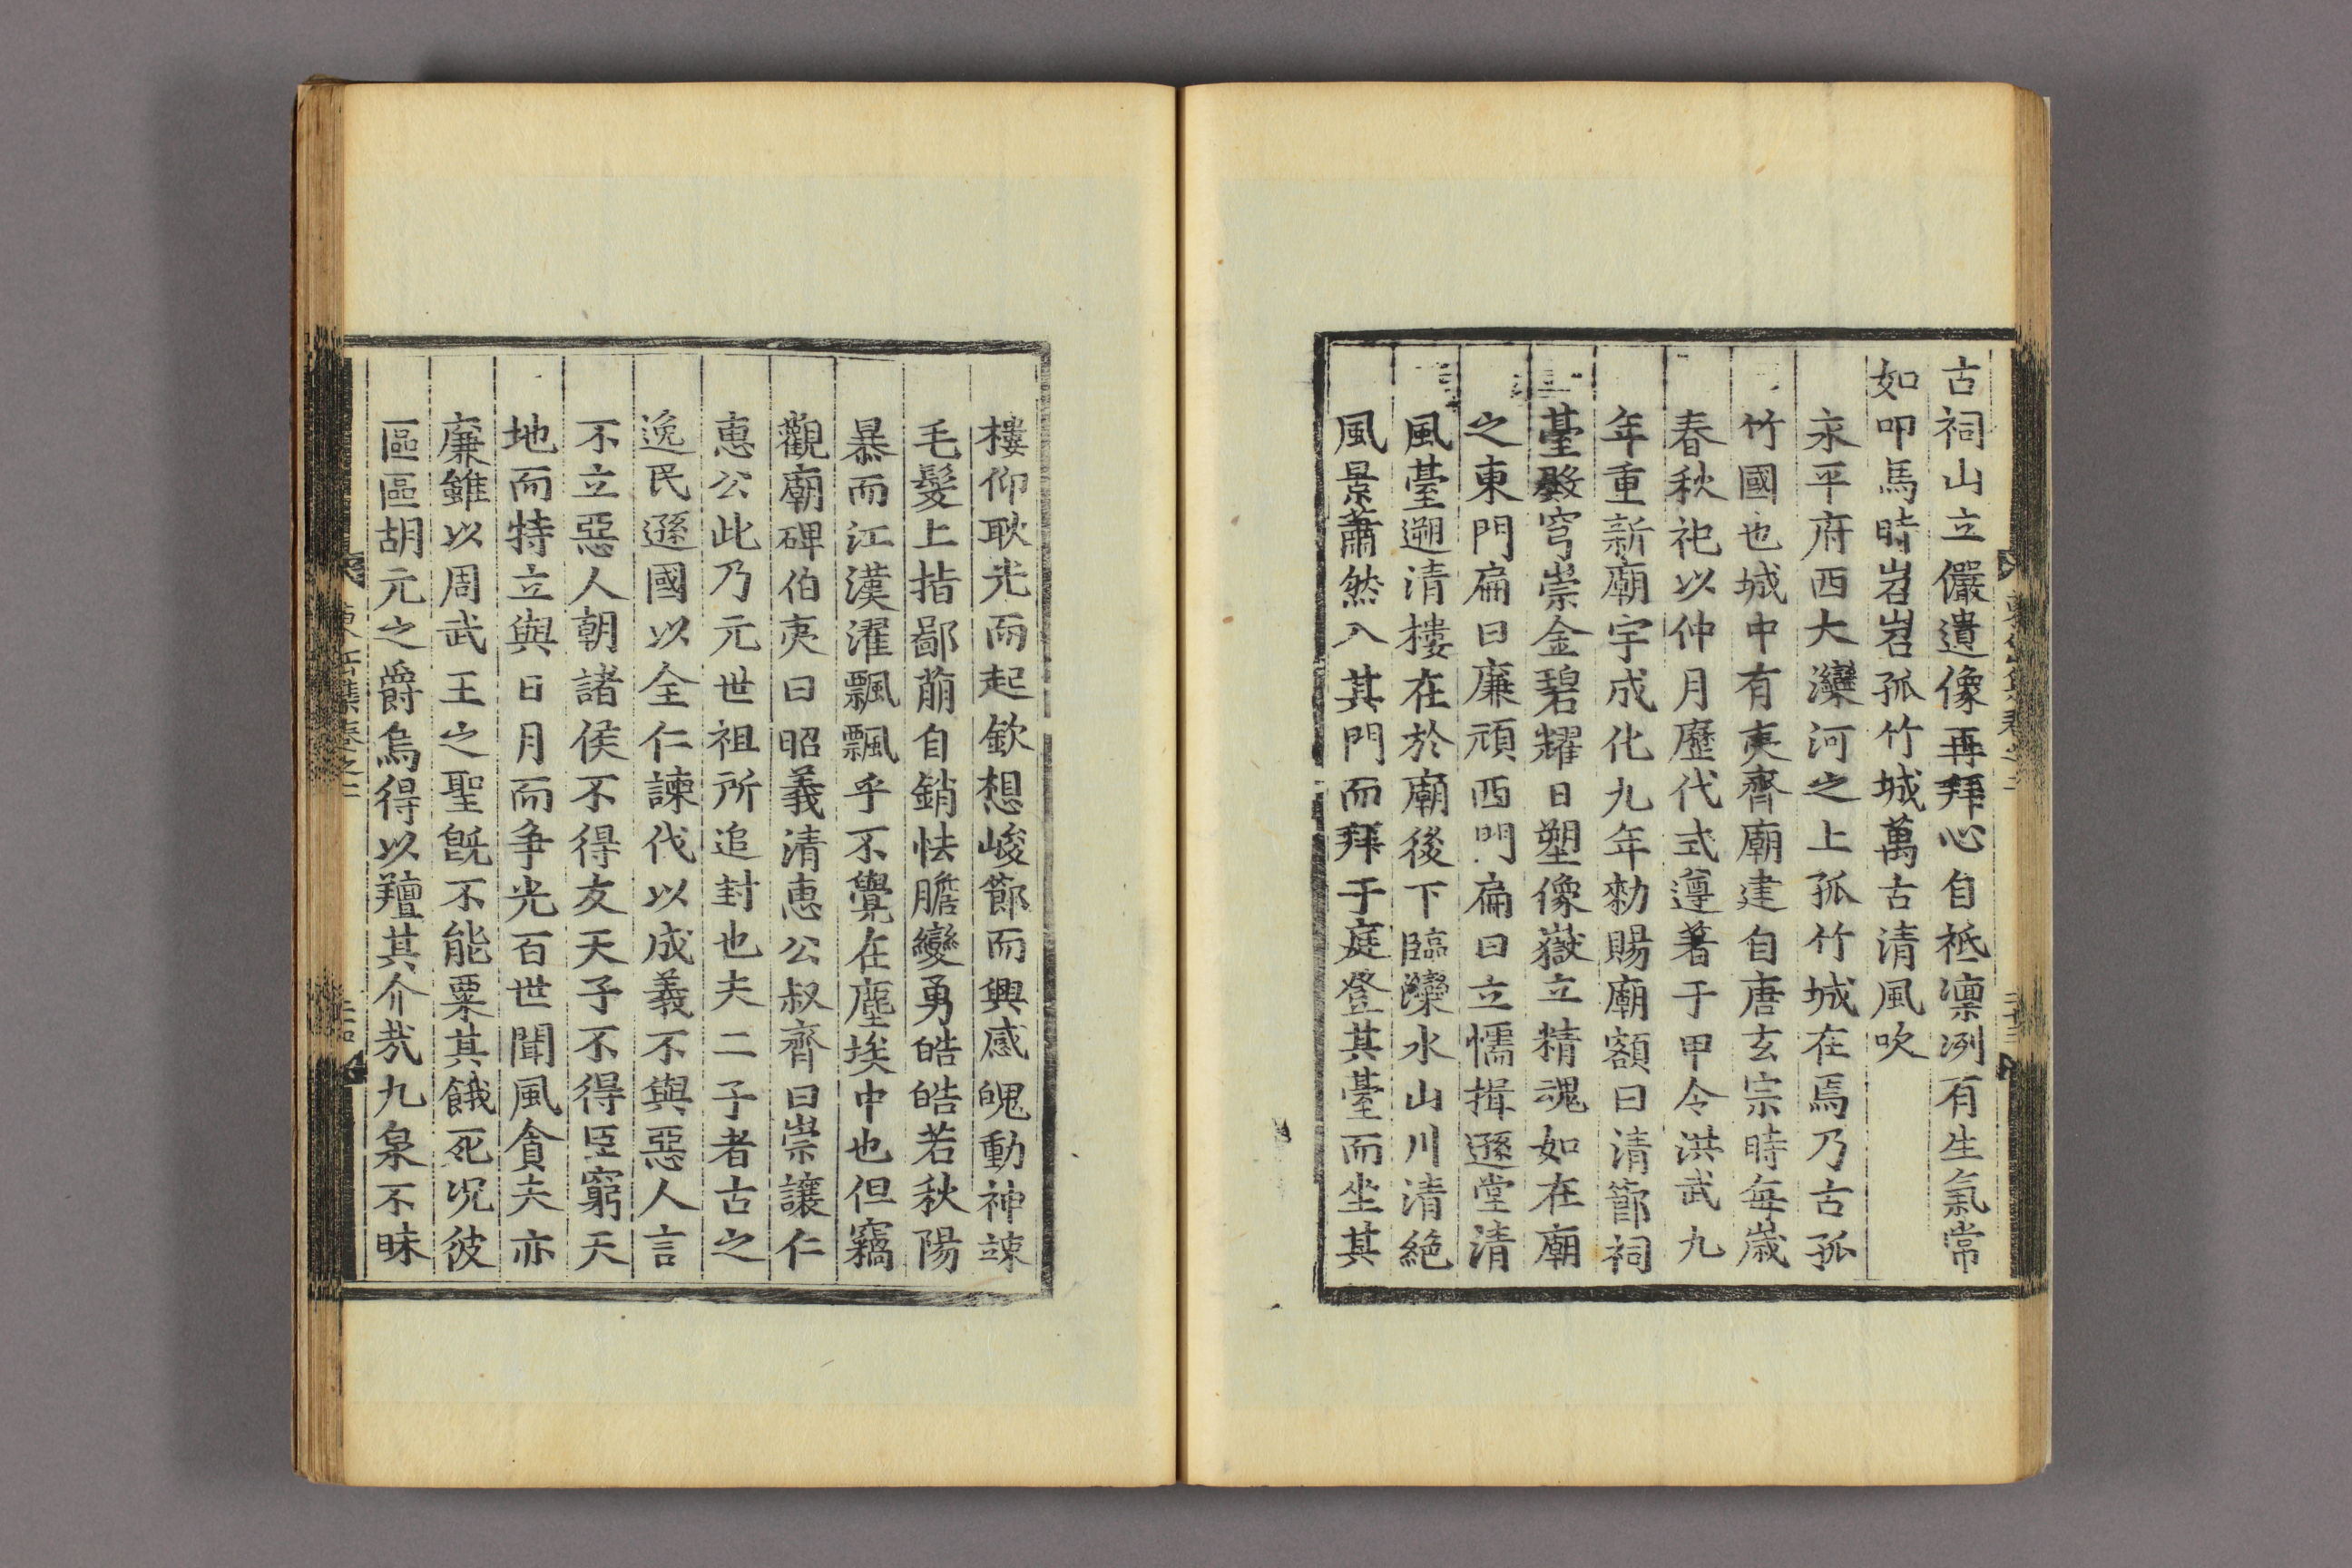 古祠山立儼遺像再拜心自祗凛冽有生氣常
如叩馬時岧岧孤竹城萬古清風吹
永平府西大灤河之上孤竹城在焉乃古孤
竹國也城中有夷齊廟建自唐玄宗時每歲
春秋祀以仲月歷代式遵著于甲令洪武九
年重新廟宇成化九年勑賜廟額曰清節祠
臺殿穹崇金碧耀日塑像嶽立精魂如在廟
之東門扁曰廉頑西門扁曰立懦揖遜堂清
風臺遡清樓在於廟後下臨灤水山川清絶
風景蕭然入其門而拜于庭登其臺而坐其
樓仰耿光而起欽想峻節而興感魄動神竦
毛髮上指鄙萠自銷怯膽變勇皓皓若秋陽
暴而江漢濯飄飄乎不覺在塵埃中也但竊
觀廟碑伯夷曰昭義清惠公叔齊曰崇讓仁
惠公此乃元世祖所追封也夫二子者古之
逸民遜國以全仁諫伐以成義不與惡人言
不立惡人朝諸侯不得友天子不得臣窮天
地而特立與日月而争光百世聞風貪夫亦
廉雖以周武王之聖旣不能粟其餓死况彼
區區胡元之爵烏得以羶其介㦲九泉不昧